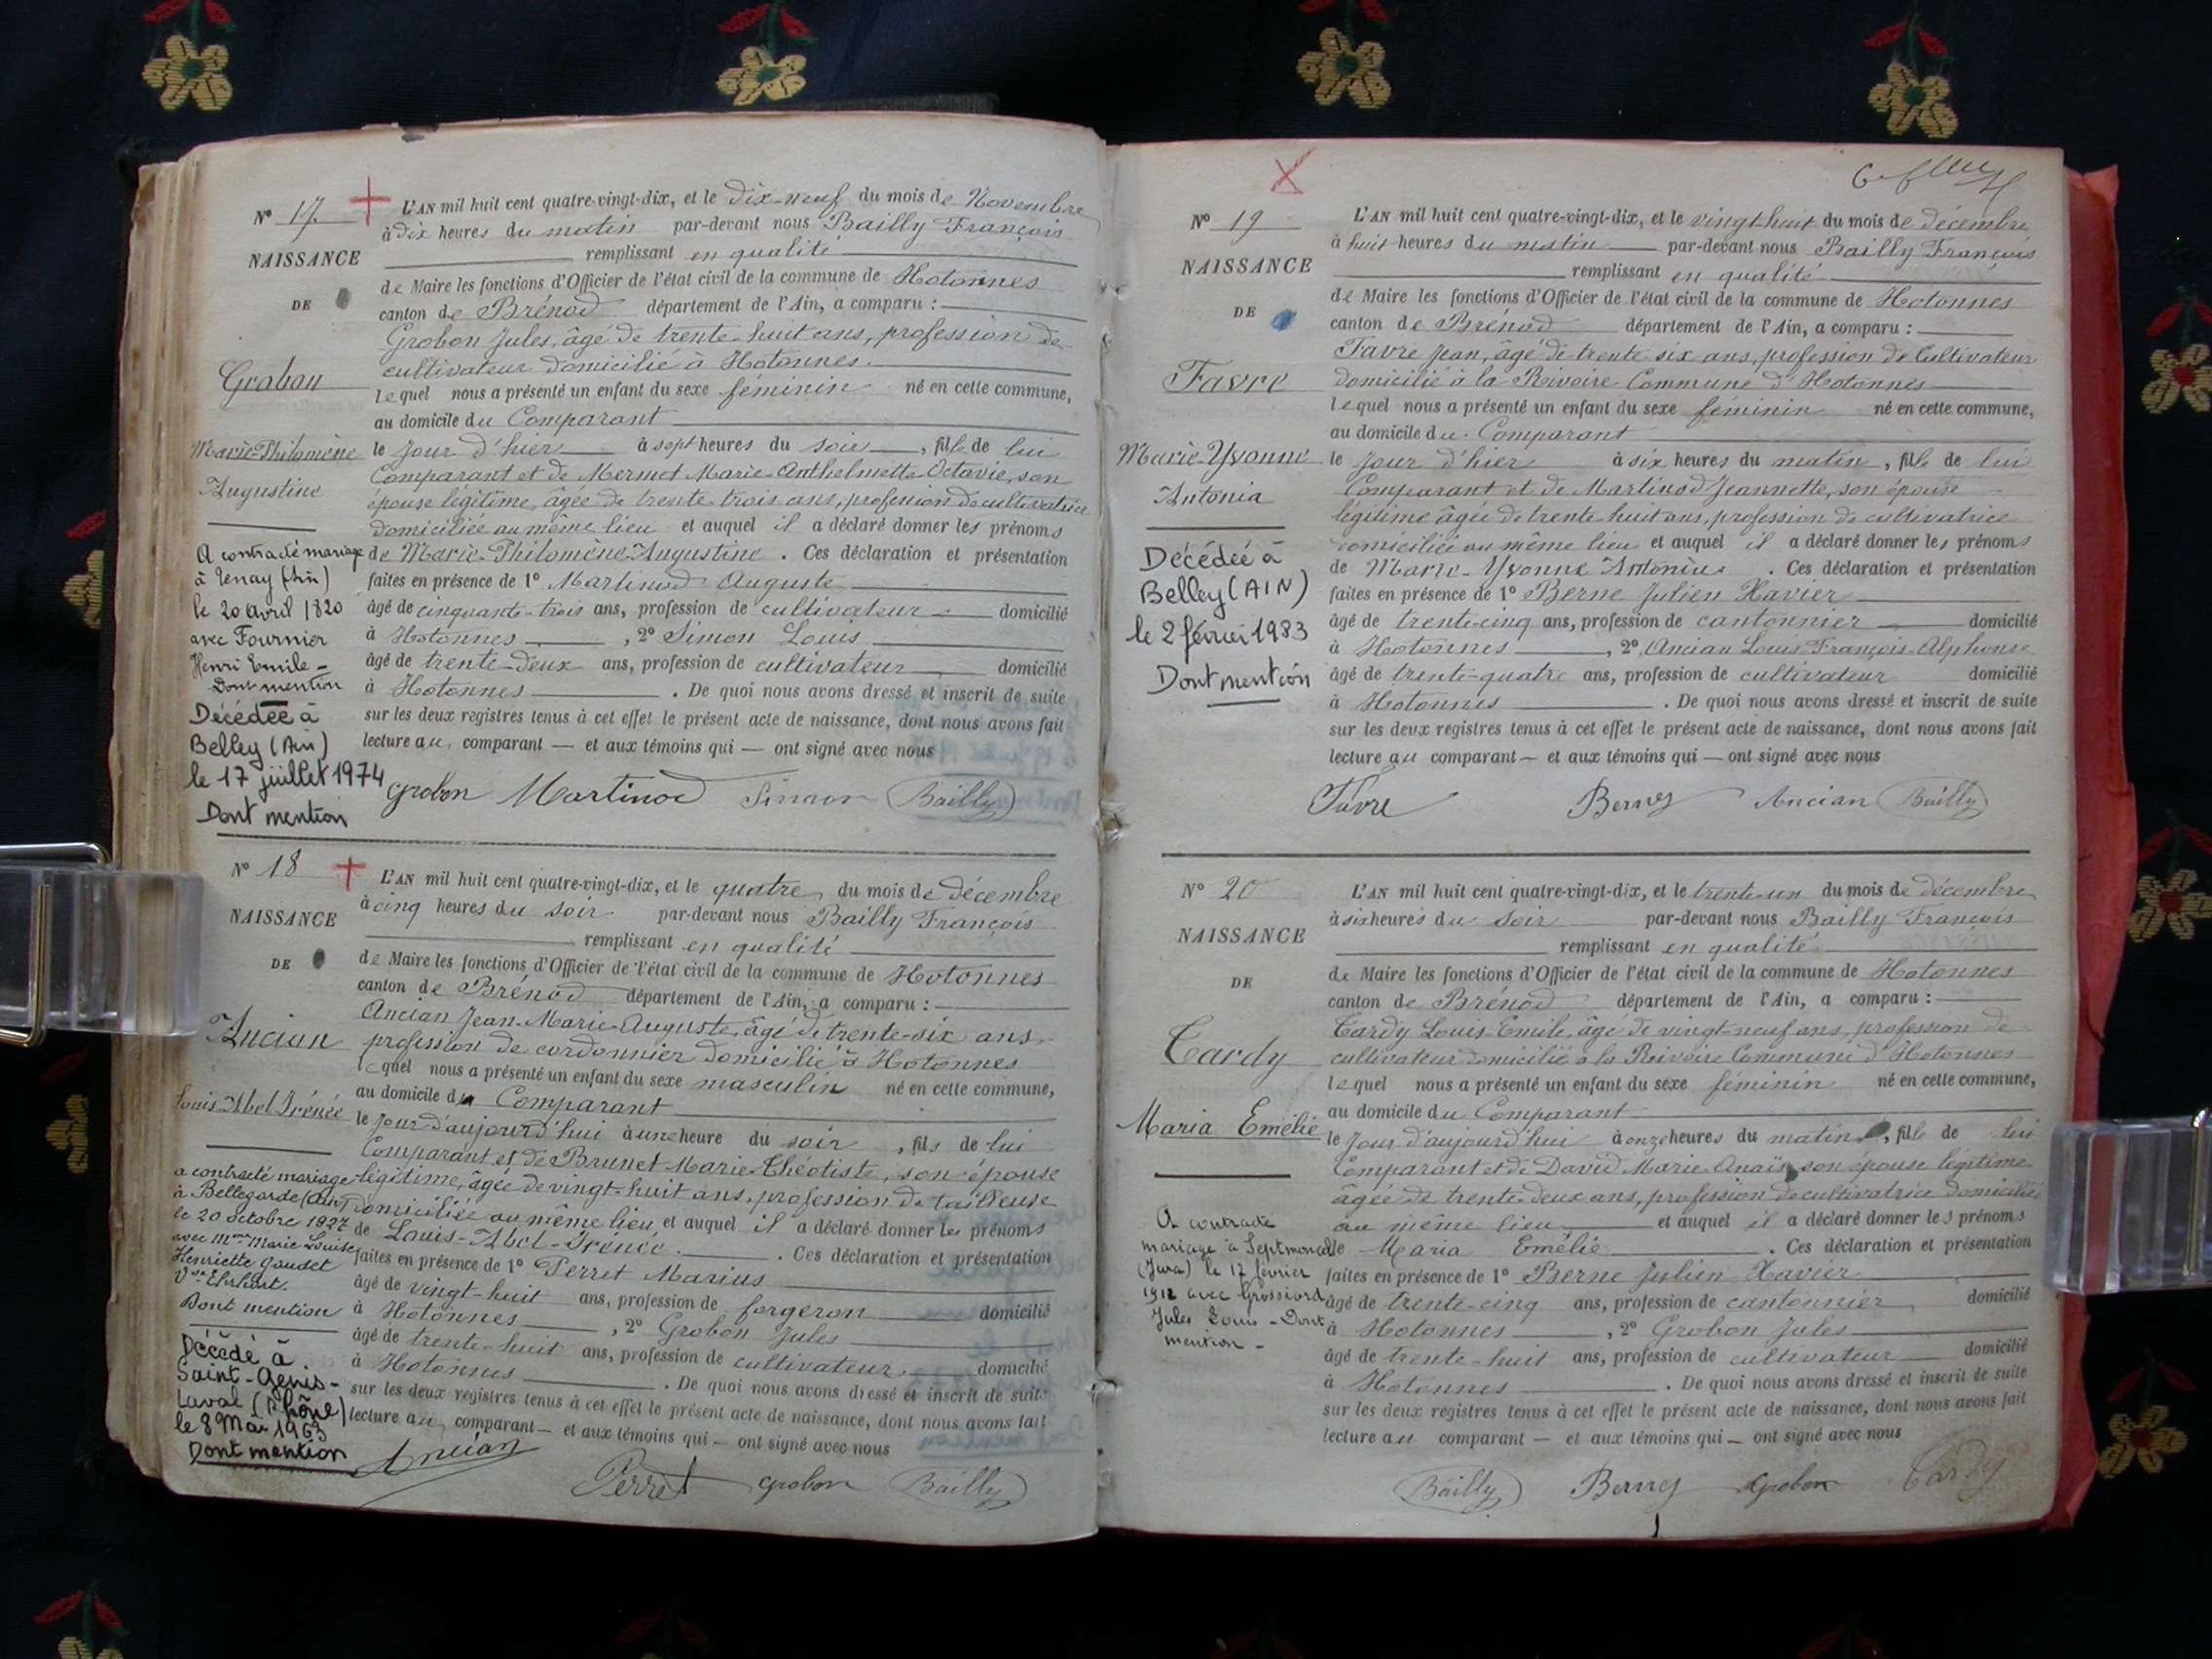 N° 17
NAISSANCE
DE
Grobon
Marie-Philomène
Augustine
A contracté mariage
à Tenay (Ain)
le 20 avril 1820
avec Fournier
Henri Emile -
Dont mention
Décédée à
Belley (Ain)
le 17 juillet 1974
Dont mention
L'AN mil huit cent quatre-vingt-dix, et le dix-neuf du mois de Novembre
à dix heures du matin par-devant nous Bailly François
remplissant en qualité
de Maire les fonctions d'Officier de l'état civil de la commune de Hotonnes
canton de Brénod département de l'Ain, a comparu :
Grobon Jules, âgé de trente-huit ans, profession de
cultivateur domicilié à Hotonnes.
lequel nous a présenté un enfant du sexe féminin né en cette commune,
au domicile du Comparant
le jour d'hier à sept heures du soir, fille de lui
Comparant et de Mermet Marie-Anthelmette-Octavie, son
épouse légitime, âgée de trente trois ans, profession de cultivatrice
domiciliée au même lieu et auquel il a déclaré donner les prénoms
de Marie-Philomène-Augustine. Ces déclaration et présentation
faites en présence de 1° Martinod Auguste
âgé de cinquante-trois ans, profession de cultivateur domicilié
à Hotonnes, 2° Simon Louis
âgé de trente-deux ans, profession de cultivateur domicilié
à Hotonnes. De quoi nous avons dressé et inscrit de suite
sur les deux registres tenus à cet effet le présent acte de naissance, dont nous avons fait
lecture au comparant — et aux témoins qui — ont signé avec nous
Grobon Martinod Simon Bailly
N° 18
NAISSANCE
DE
Ancian
Louis-Abel-Irénée
a contracté mariage
à Bellegarde (Ain)
le 20 octobre 1927
avec Mme Marie Louise
Henriette Gaudet
Vve Ehrhart.
Dont mention
Décédé à
Saint-Genis-
Laval (Rhône)
le 8 Mai 1963
Dont mention
L'AN mil huit cent quatre-vingt-dix, et le quatre du mois de décembre
à cinq heures du soir par-devant nous Bailly François
remplissant en qualité
de Maire les fonctions d'Officier de l'état civil de la commune de Hotonnes
canton de Brénod département de l'Ain, a comparu :
Ancian Jean-Marie-Auguste, âgé de trente-six ans
profession de cordonnier domicilié à Hotonnes
lequel nous a présenté un enfant du sexe masculin né en cette commune,
au domicile du Comparant
le jour d'aujourd'hui à une heure du soir, fils de lui
Comparant et de Brunet Marie-Théotiste, son épouse
légitime, âgée de vingt-huit ans, profession de tailleuse
domiciliée au même lieu et auquel il a déclaré donner les prénoms
de Louis-Abel-Irénée. Ces déclaration et présentation
faites en présence de 1° Perret Marius
âgé de vingt-huit ans, profession de forgeron domicilié
à Hotonnes, 2° Grobon Jules
âgé de trente-huit ans, profession de cultivateur domicilié
à Hotonnes. De quoi nous avons dressé et inscrit de suite
sur les deux registres tenus à cet effet le présent acte de naissance, dont nous avons fait
lecture au comparant — et aux témoins qui — ont signé avec nous
Ancian
Perret Grobon Bailly
N° 19
NAISSANCE
DE
Favre
Marie-Yvonne
Antonia
Décédée à
Belley (AIN)
le 2 février 1983
Dont mention
L'AN mil huit cent quatre-vingt-dix, et le vingt-huit du mois de décembre
à huit heures du matin par-devant nous Bailly François
remplissant en qualité
de Maire les fonctions d'Officier de l'état civil de la commune de Hotonnes
canton de Brénod département de l'Ain, a comparu :
Favre Jean, âgé de trente six ans, profession de Cultivateur
domicilié à la Rivoire Commune d'Hotonnes
lequel nous a présenté un enfant du sexe féminin né en cette commune,
au domicile du Comparant
le jour d'hier à six heures du matin, fille de lui
Comparant et de Martinod Jeannette, son épouse
légitime âgée de trente huit ans, profession de cultivatrice
domiciliée au même lieu et auquel il a déclaré donner les prénoms
de Marie-Yvonne Antonia. Ces déclaration et présentation
faites en présence de 1° Berne Julien Xavier
âgé de trente-cinq ans, profession de cantonnier domicilié
à Hotonnes, 2° Ancian Louis-François-Alphonse
âgé de trente-quatre ans, profession de cultivateur domicilié
à Hotonnes. De quoi nous avons dressé et inscrit de suite
sur les deux registres tenus à cet effet le présent acte de naissance, dont nous avons fait
lecture au comparant — et aux témoins qui — ont signé avec nous
Favre Berne Ancian Bailly
N° 20
NAISSANCE
DE
Tardy
Maria Emélie
A contracté
mariage à Septmoncel
(Jura) le 17 février
1912 avec Grossiord
Jules Louis - Dont
mention -
L'AN mil huit cent quatre-vingt-dix, et le trente-un du mois de décembre
à six heures du soir par-devant nous Bailly François
remplissant en qualité
de Maire les fonctions d'Officier de l'état civil de la commune de Hotonnes
canton de Brénod département de l'Ain, a comparu :
Tardy Louis-Emile, âgé de vingt-neuf ans, profession de
cultivateur domicilié à la Rivoire Commune d'Hotonnes
lequel nous a présenté un enfant du sexe féminin né en cette commune,
au domicile du Comparant
le jour d'aujourd'hui à onze heures du matin, fille de lui
Comparant et de David Marie-Anaïs, son épouse légitime
âgée de trente-deux ans, profession de cultivatrice domiciliée
au même lieu et auquel il a déclaré donner les prénoms
de Maria Emélie. Ces déclaration et présentation
faites en présence de 1° Berne Julien Xavier
âgé de trente-cinq ans, profession de cantonnier domicilié
à Hotonnes, 2° Grobon Jules
âgé de trente-huit ans, profession de cultivateur domicilié
à Hotonnes. De quoi nous avons dressé et inscrit de suite
sur les deux registres tenus à cet effet le présent acte de naissance, dont nous avons fait
lecture au comparant — et aux témoins qui — ont signé avec nous
Bailly Berne Grobon Tardy